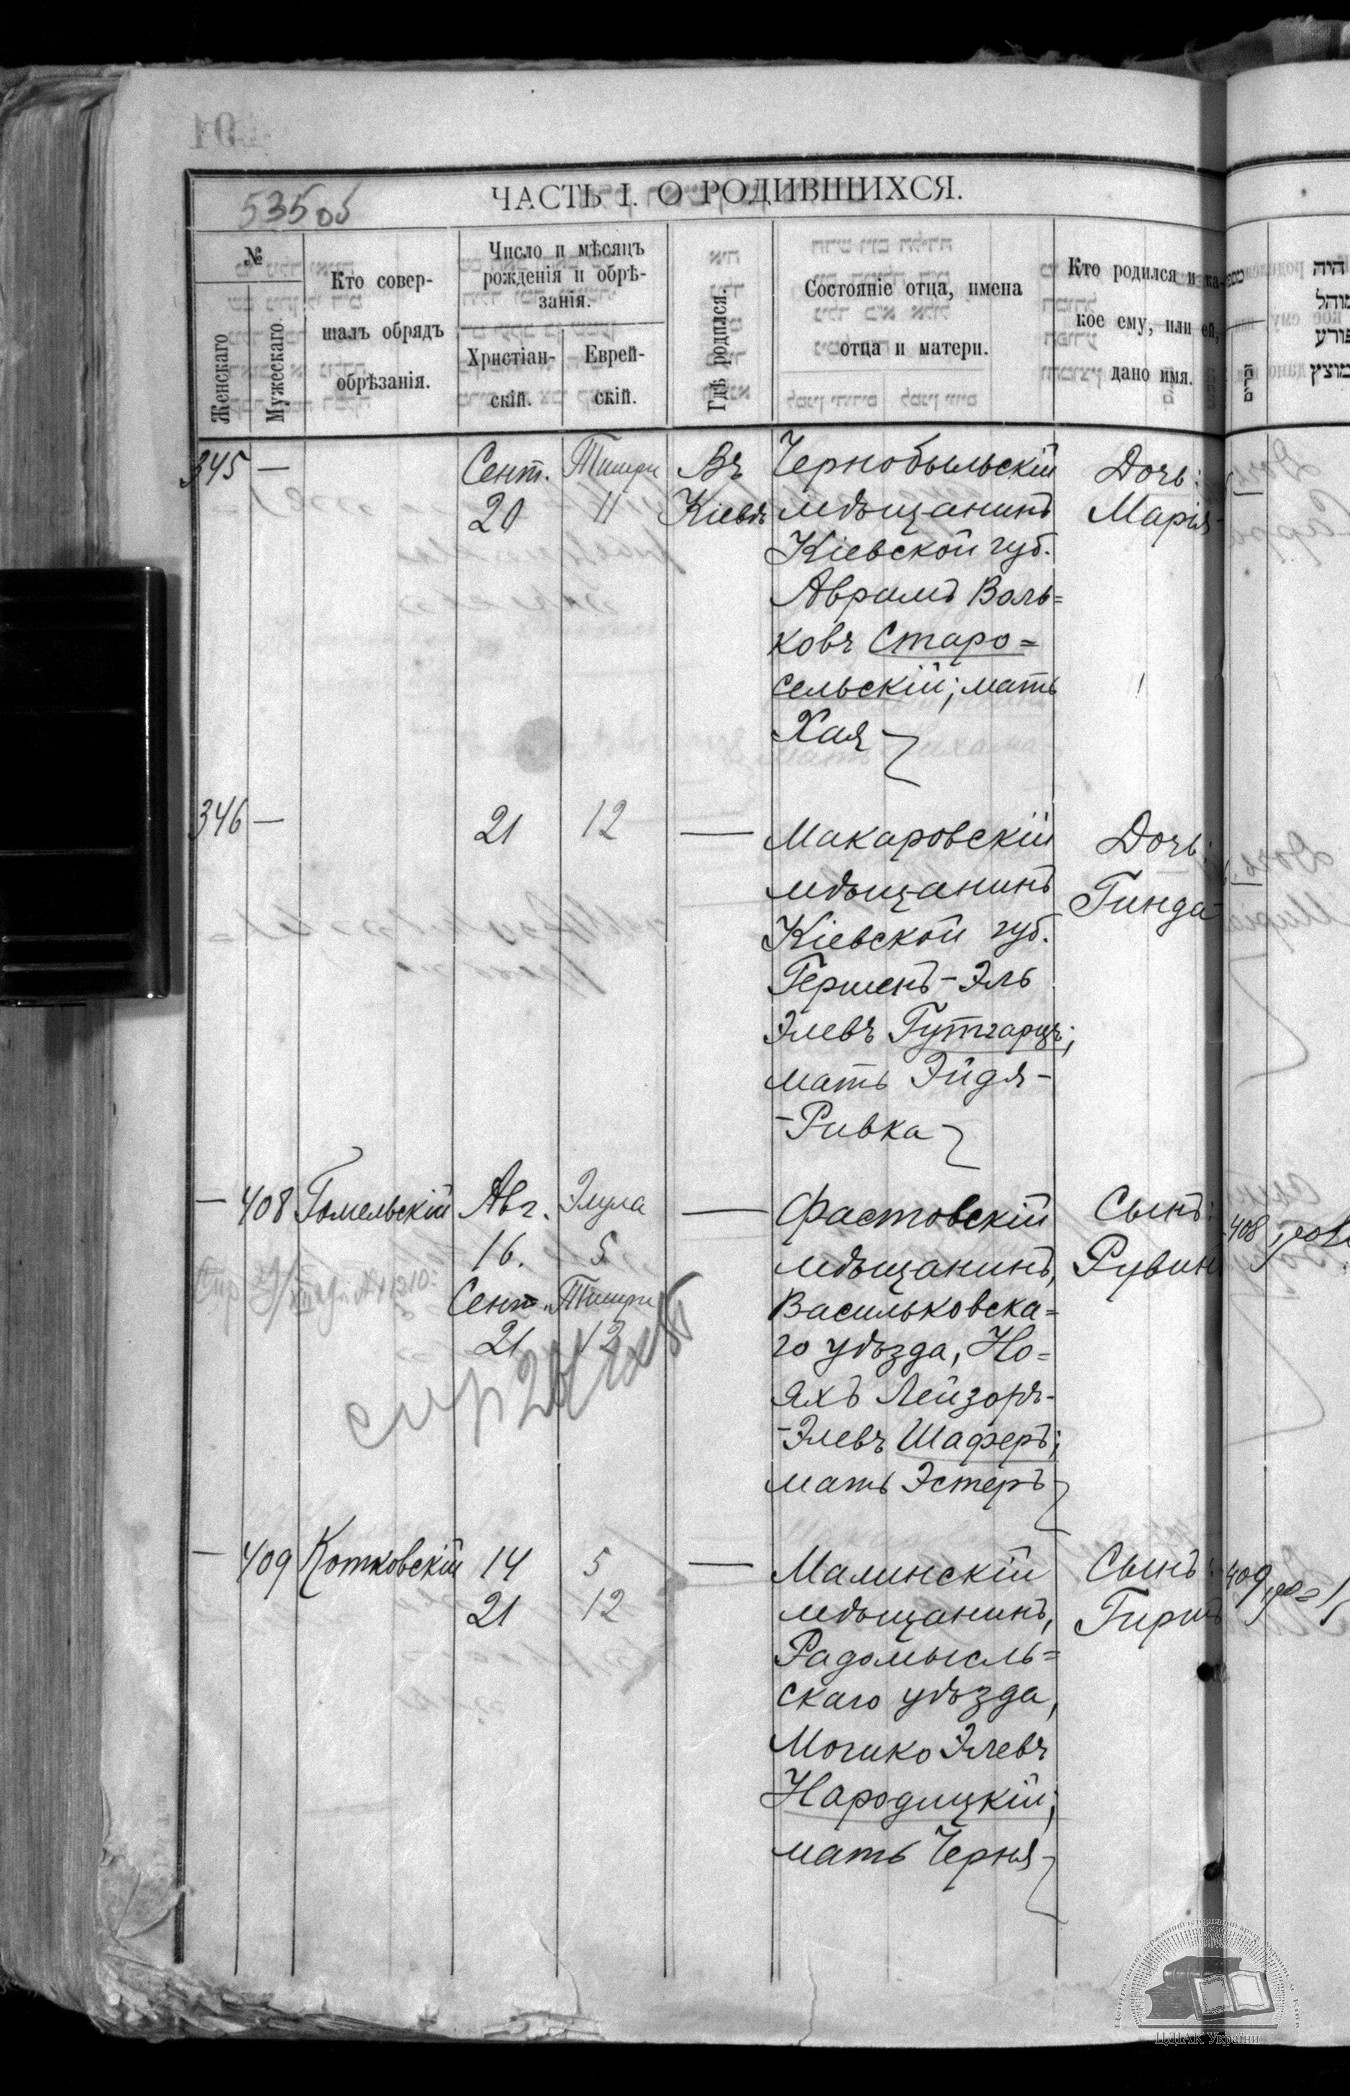 535 об
ЧАСТЬ I. О РОДИВШИХСЯ.
№
Женскаго
Мужескаго.
Кто совер-
шалъ обрядъ
обрѣзанія.
Число и мѣсяцъ
рожденія и обрѣ-
занія.
Христіан-
скій.
Еврей-
скій.
Гдѣ родился.
Состояніе отца, имена
отца и матери.
Кто родился и ка-
кое ему, или ей,
дано имя.
345 —
Сент.
20
Тишри
11
Въ
Кіевѣ
Чернобыльскій
мѣщанинъ
Кіевской губ.
Аврумъ Воль=
ковъ Старо=
сельскій; мать
Хая
Дочь:
Марія
346 —
21
12
—
Макаровскій
мѣщанинъ
Кіевской губ.
Гершенъ-Эль
Элевъ Гутгарцъ;
мать Эйдя-
-Ривка
Дочь:
Гинда
— 408
Гомельскій
Авг.
16.
Сент.
21
Элула
5
Тишри
12
—
Фастовскій
мѣщанинъ,
Васильковска=
го уѣзда, Но=
яхъ Лейзоръ-
-Элевъ Шаферъ;
мать Эстеръ
Сынъ:
Рувин
— 409
Котковскій
14
21
5
12
—
Малинскій
мѣщанинъ,
Радомысль=
скаго уѣзда,
Мошко Элевъ
Народицкій;
мать Черня
Сынъ:
Гирш
408
409
היה
מוהל
פורע
מוצץ
ЦДІАК України